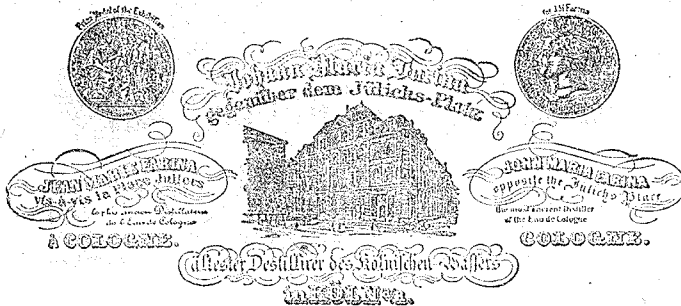 Prize Medal of the Exhibition
for J.M Farina
Johann Maria Farina
gegenüber dem Jülichs-Platz
JEAN MARIE FARINA
Vis-à-vis la Place Juliers
le plus ancien Distillateur
de l'Eau de Cologne
À COLOGNE.
JOHN MARIA FARINA
opposite the Julichs Place
the most ancient Distiller
of the Eau de Cologne
COLOGNE.
ältester Destillirer des Kölnischen Wassers
in KÖLN